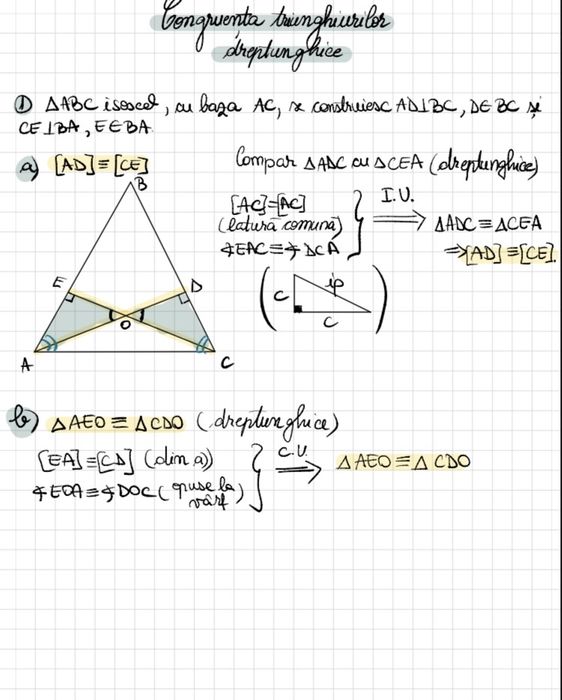 Congruenta triunghiurilor
dreptunghice
① △ABC isoscel, cu baza AC, se construiesc AD⊥BC, D∈BC și
CE⊥BA, E∈BA.
a) [AD]≡[CE]
Compar △ADC cu △CEA (dreptunghice)
[AC]=[AC]
(latură comună)
∢EAC≡∢DCA
I.U.
⟹ △ADC≡△CEA
⟹[AD]≡[CE].
B
E
D
O
A
C
C
ip
C
b) △AEO≡△CDO (dreptunghice)
[EA]≡[CD] (din a))
∢EOA≡∢DOC (opuse la
vârf)
C.U.
⟹ △AEO≡△CDO